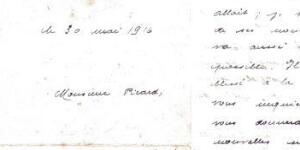 le 30 mai 1916
Monsieur Picard,
allait ; j
de ses nou
va aussi
possible
blessé à la
vous inquié
vous donner
nouvelles